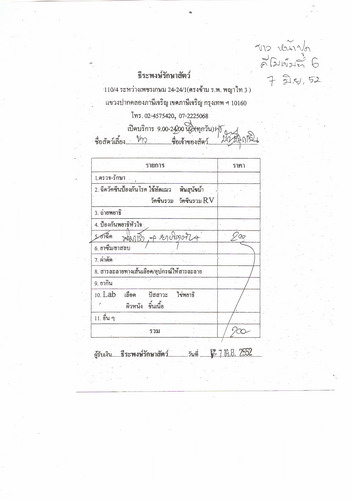 ขาว
คีโมเข็มที่ 6
7 มิ.ย. 52
ธีระพงษ์รักษาสัตว์
110/4 ระหว่างเพชรเกษม 24-24/1(ตรงข้าม ร.พ. พญาไท 3 )
แขวงปากคลองภาษีเจริญ เขตภาษีเจริญ กรุงเทพ ฯ 10160
โทร. 02-4575420, 07-2225068
เปิดบริการ 9.00-2400 น.(ทุกวัน)
ชื่อสัตว์เลี้ยง ขาว ชื่อเจ้าของสัตว์
รายการ ราคา
1.ตรวจ-รักษา
2. ฉีดวัคซีนป้องกันโรค ไข้หัดแมว พิษสุนัขบ้า
วัคซีนรวม วัคซีนรวม RV
3. ถ่ายพยาธิ
4. ป้องกันพยาธิหัวใจ
5. ยาฉีด 200
6. ยาซึม/ยาสลบ
7. ผ่าตัด
8. สารละลายทางเส้นเลือด/อุปกรณ์ให้สารละลาย
9. ยากิน
10. Lab เลือด ปัสสาวะ ไข่พยาธิ
ผิวหนัง ชิ้นเนื้อ
11. อื่น ๆ
รวม 200
ผู้รับเงิน ธีระพงษ์รักษาสัตว์ วันที่ 7 มิ.ย. 2552